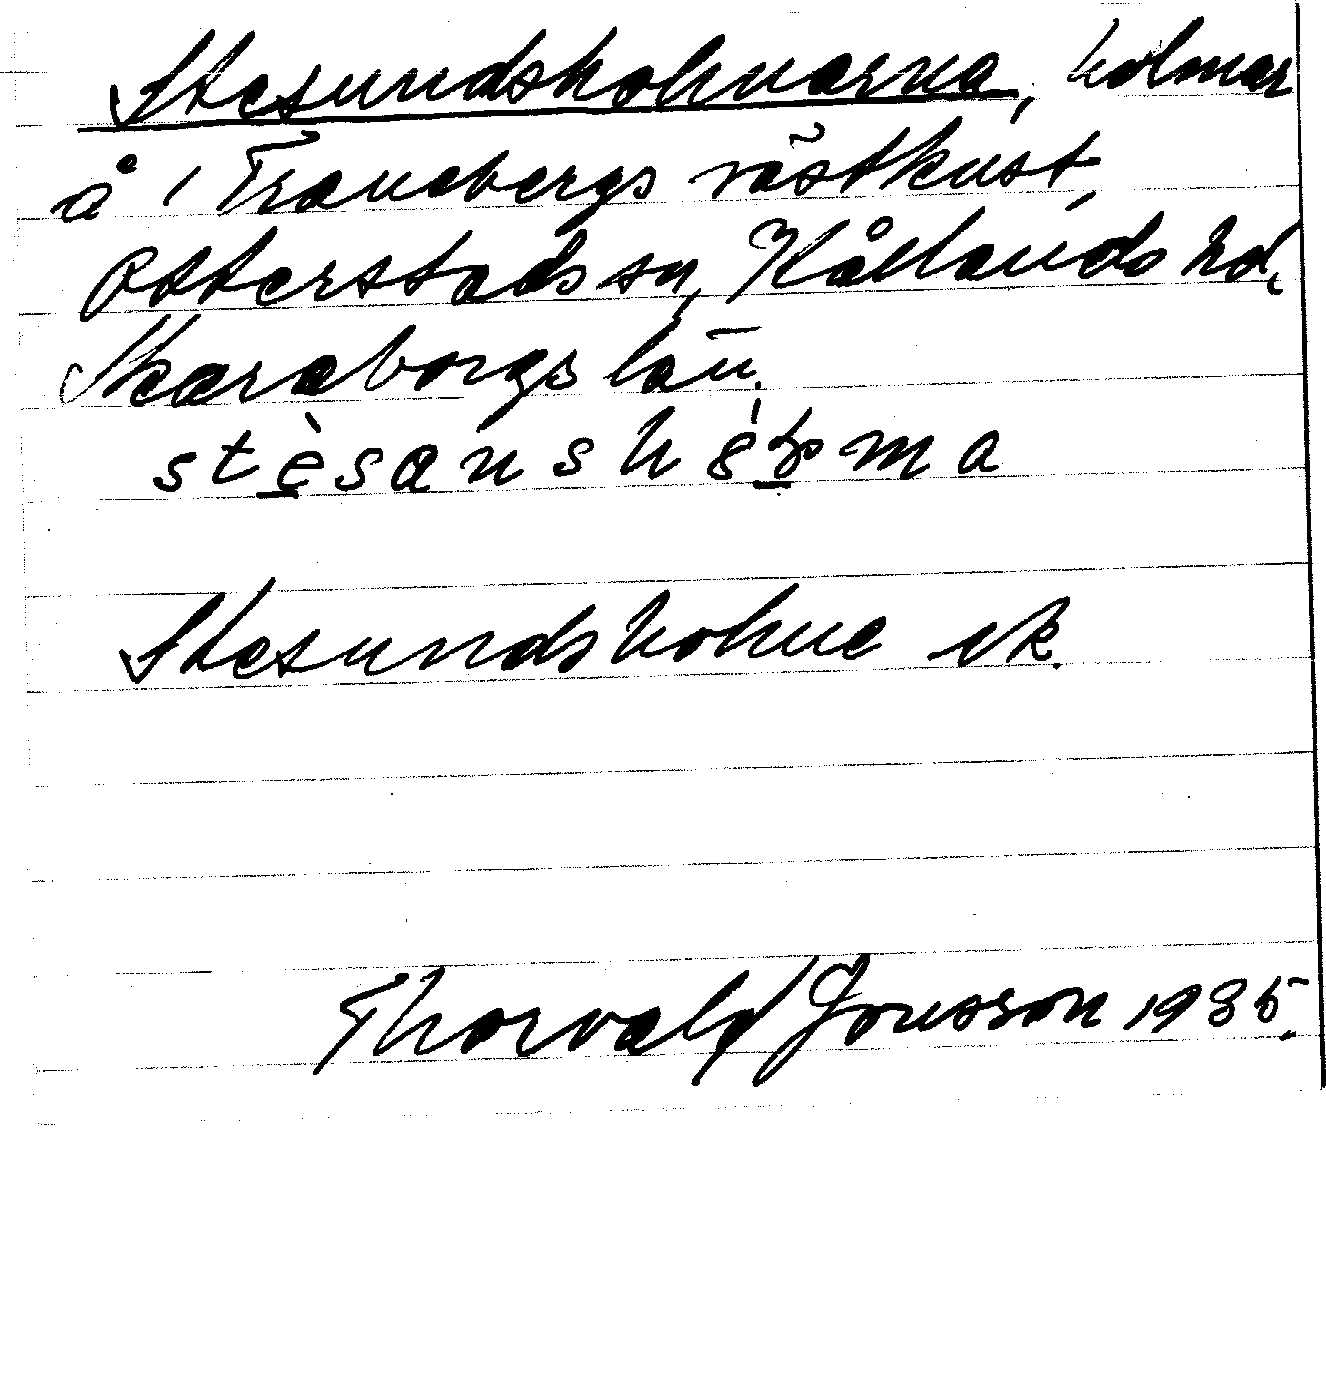 Stesundsholmarna, holmar
å i Tranebergs västkust,
Otterstads sn, Kållands hd,
Skaraborgs län.
Stesundsholme ek.
Thorvald Jonsson 1935.